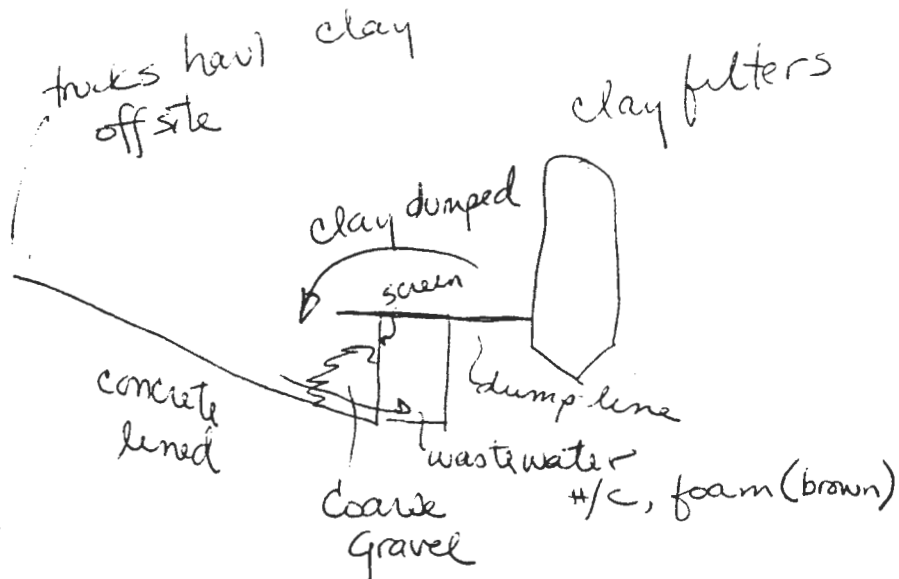 trucks haul clay
offsite
clay filters
clay dumped
screen
concrete
lined
dump line
wastewater
H/C, foam (brown)
Coarse
Gravel